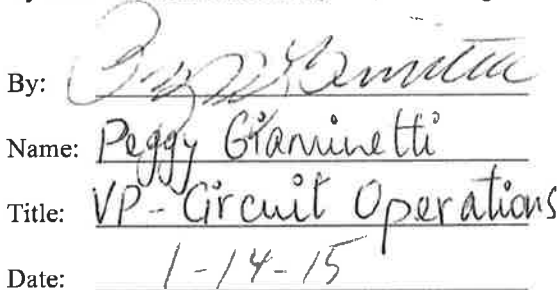 By:
Name: Peggy Gianninetti
Title: VP - Circuit Operations
Date: 1-14-15